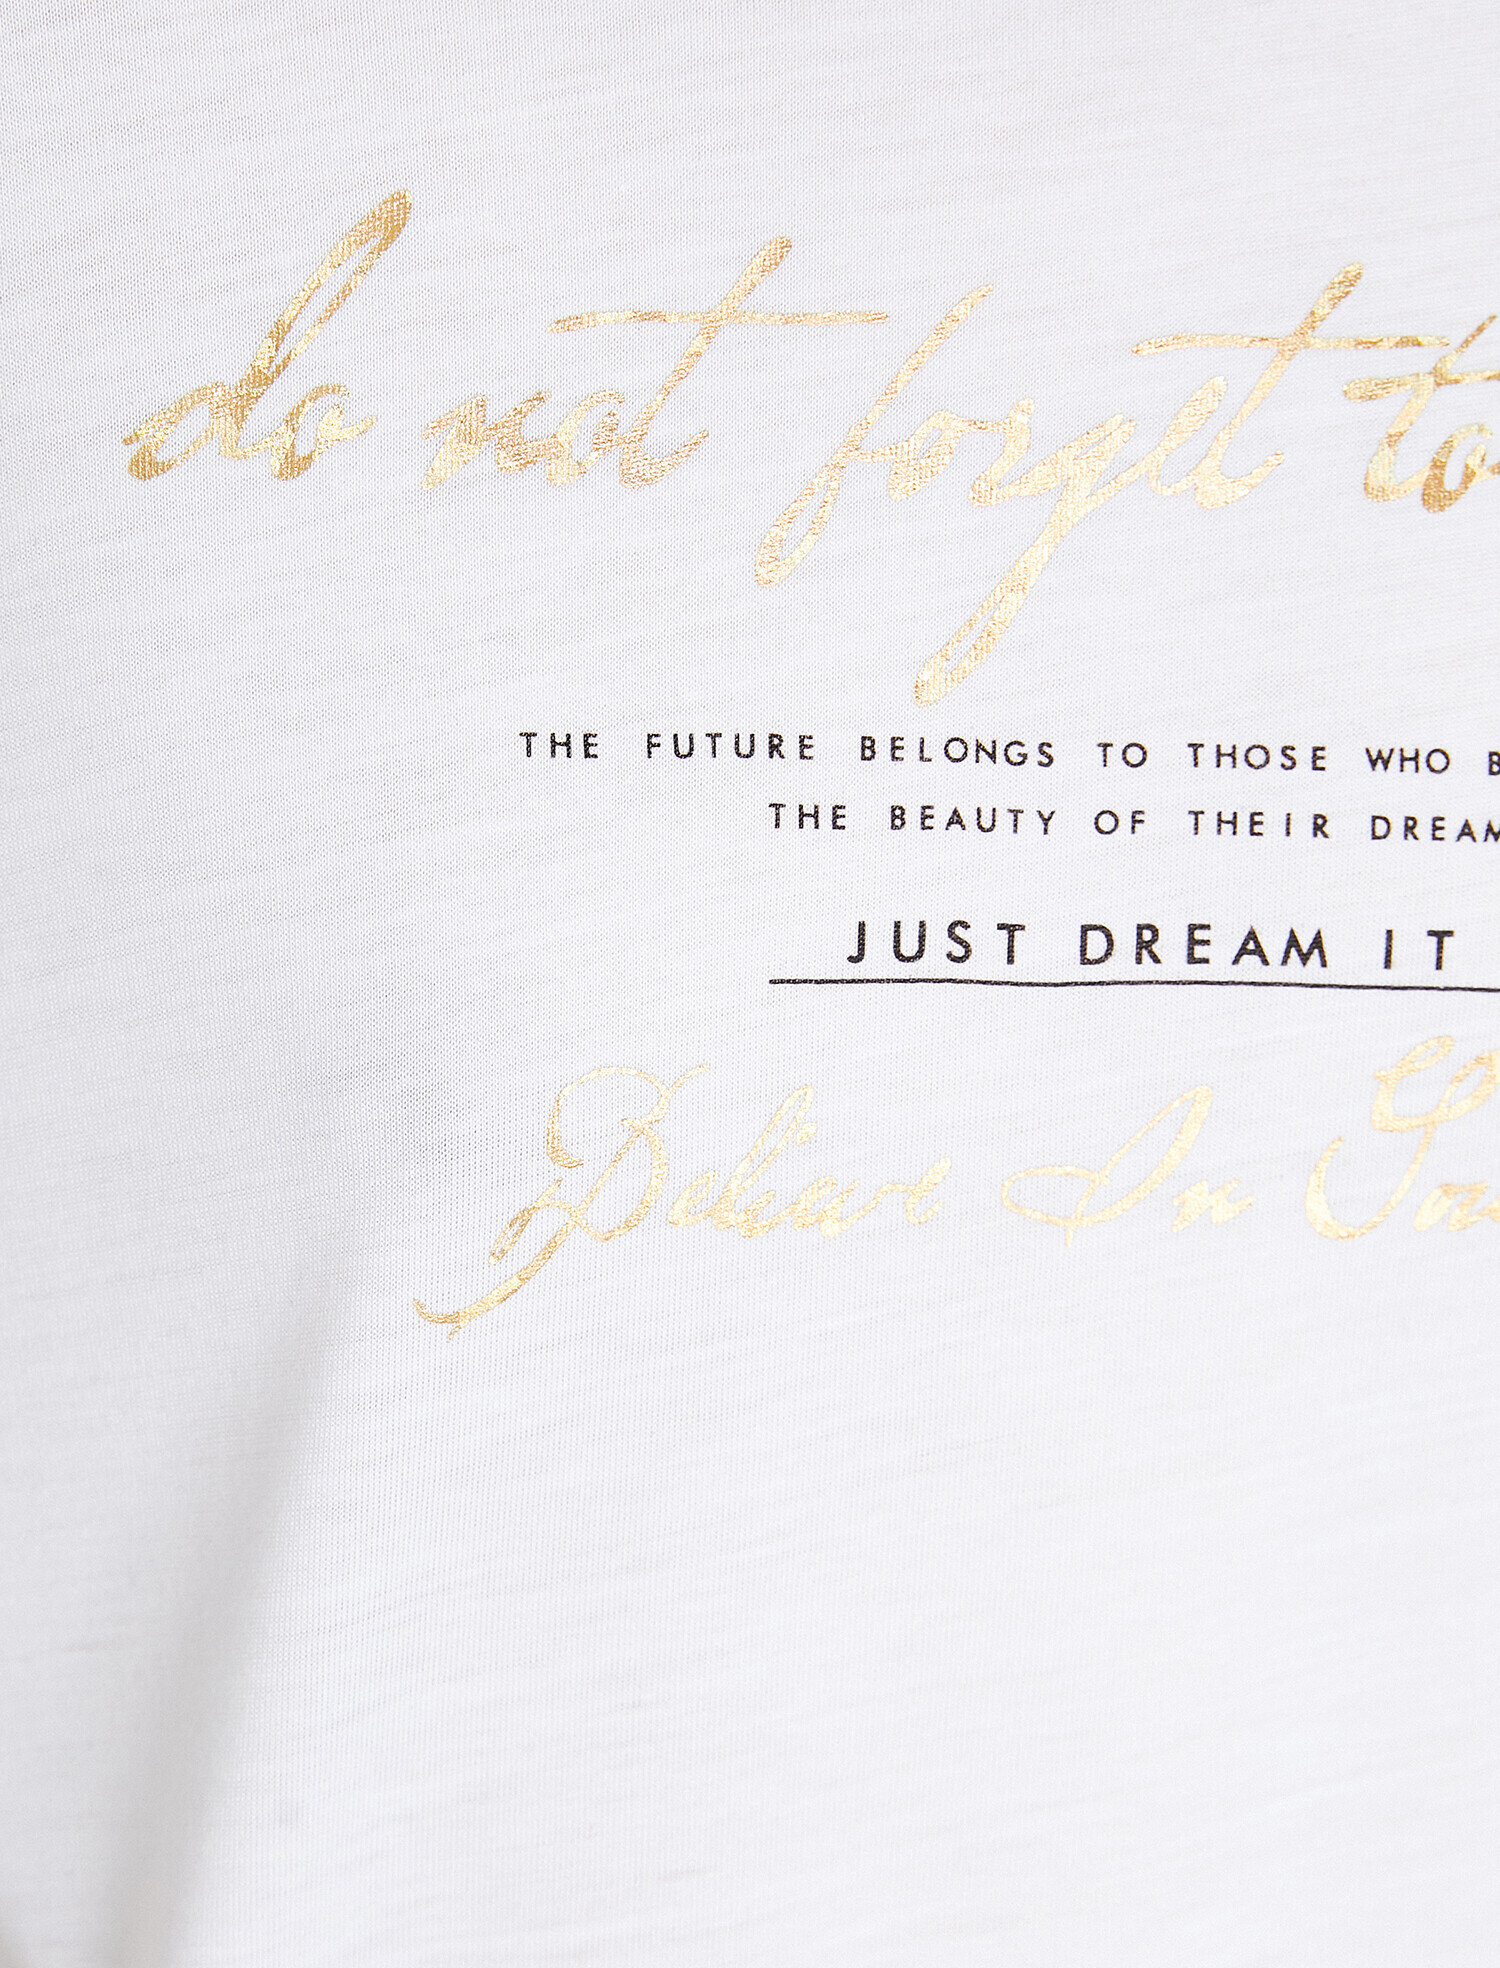 do not forget to
THE FUTURE BELONGS TO THOSE WHO B
THE BEAUTY OF THEIR DREAM
JUST DREAM IT
Believe In You